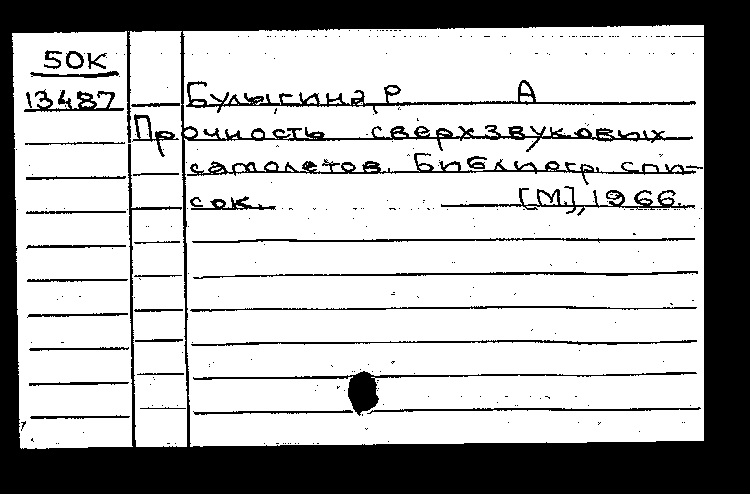 50К
13487
Булыгина, Р А
Прочность сверхзвуковых
самолетов. Библиогр. спи-
сок.
[М.], 1966.